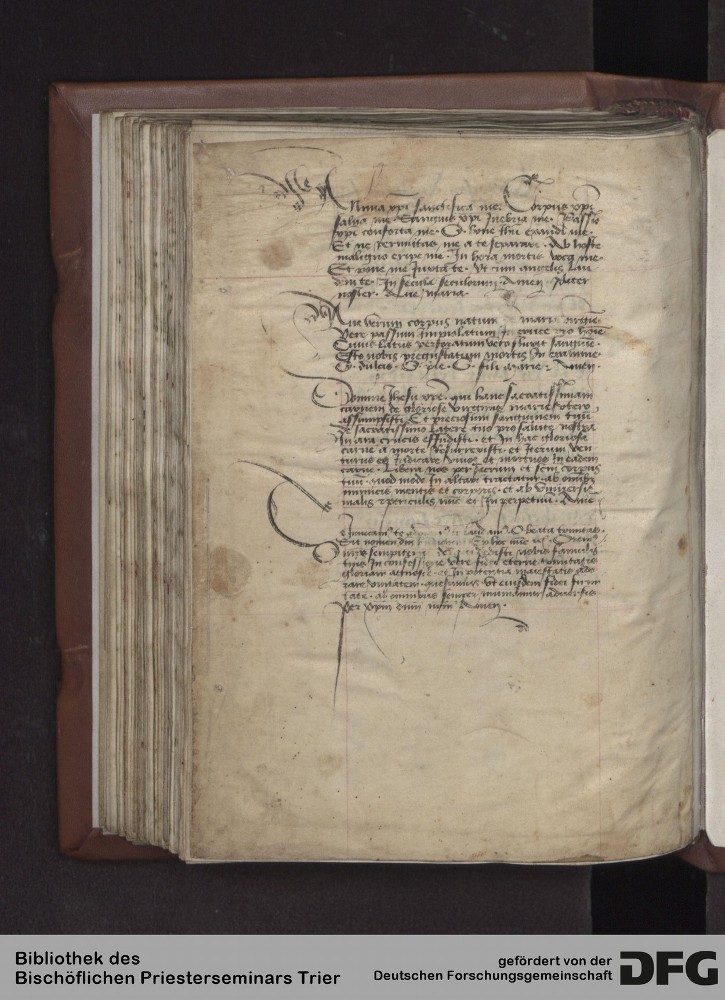 Anima xpi sanctifica me. Corpus xpi
salva me. Sanguis xpi Inebria me. Passio
xpi conforta me. O. bone Ihu exaudi me.
Et ne permittas me a te separari. Ab hoste
maligno eripe me. In hora mortis voca me.
Et pone me Iuxta te. Ut cum angelis lau
dem te. In secula seculorum. Amen. Pater
noster. Ave maria.
Ave verum corpus natum de maria virgīe.
Vere passum Immolatum In cruce pro hoīe
Cuius latus perforatum vero fluxit sanguīe.
Esto nobis pregustatum mortis In examine.
O. dulcis. O. pie. O. fili marie. Amen.
Domine Ihesu xpe. qui hanc sacratissimam
carnem de gloriose virginis marie utero
assumpsisti. Et preciosum sanguinem tuū
de sacratissimo latere tuo pro salute nostra
In ara crucis effudisti. et In hac gloriosa
carne a morte resurrexisti. et Iterum ven
turus es Iudicare vivos et mortuos In eadem
carne. Libera nos per sacrum et scm corpus
tuū. quod modo In altari tractatur. ab omībȝ
Inmundiciis mentis et corporis. et ab universis
malis et periculis nūc et In perpetuū. Ame
Te Invocam te O beata trinitas.
Sit nomen dni Omps
sempiterne de qui dedisti nobis famulis
tuis In confessione vere fidei eterne trinitatis
gloriam agnoscere et In potentia maiestatis ado
rare unitatem. quesumus. Ut eiusdem fidei firmi
tate. ab omnibus semper muniamur adversis
Per xpm dnm nrm Amen.
Bibliothek des
Bischöflichen Priesterseminars Trier
gefördert von der
Deutschen Forschungsgemeinschaft
DFG